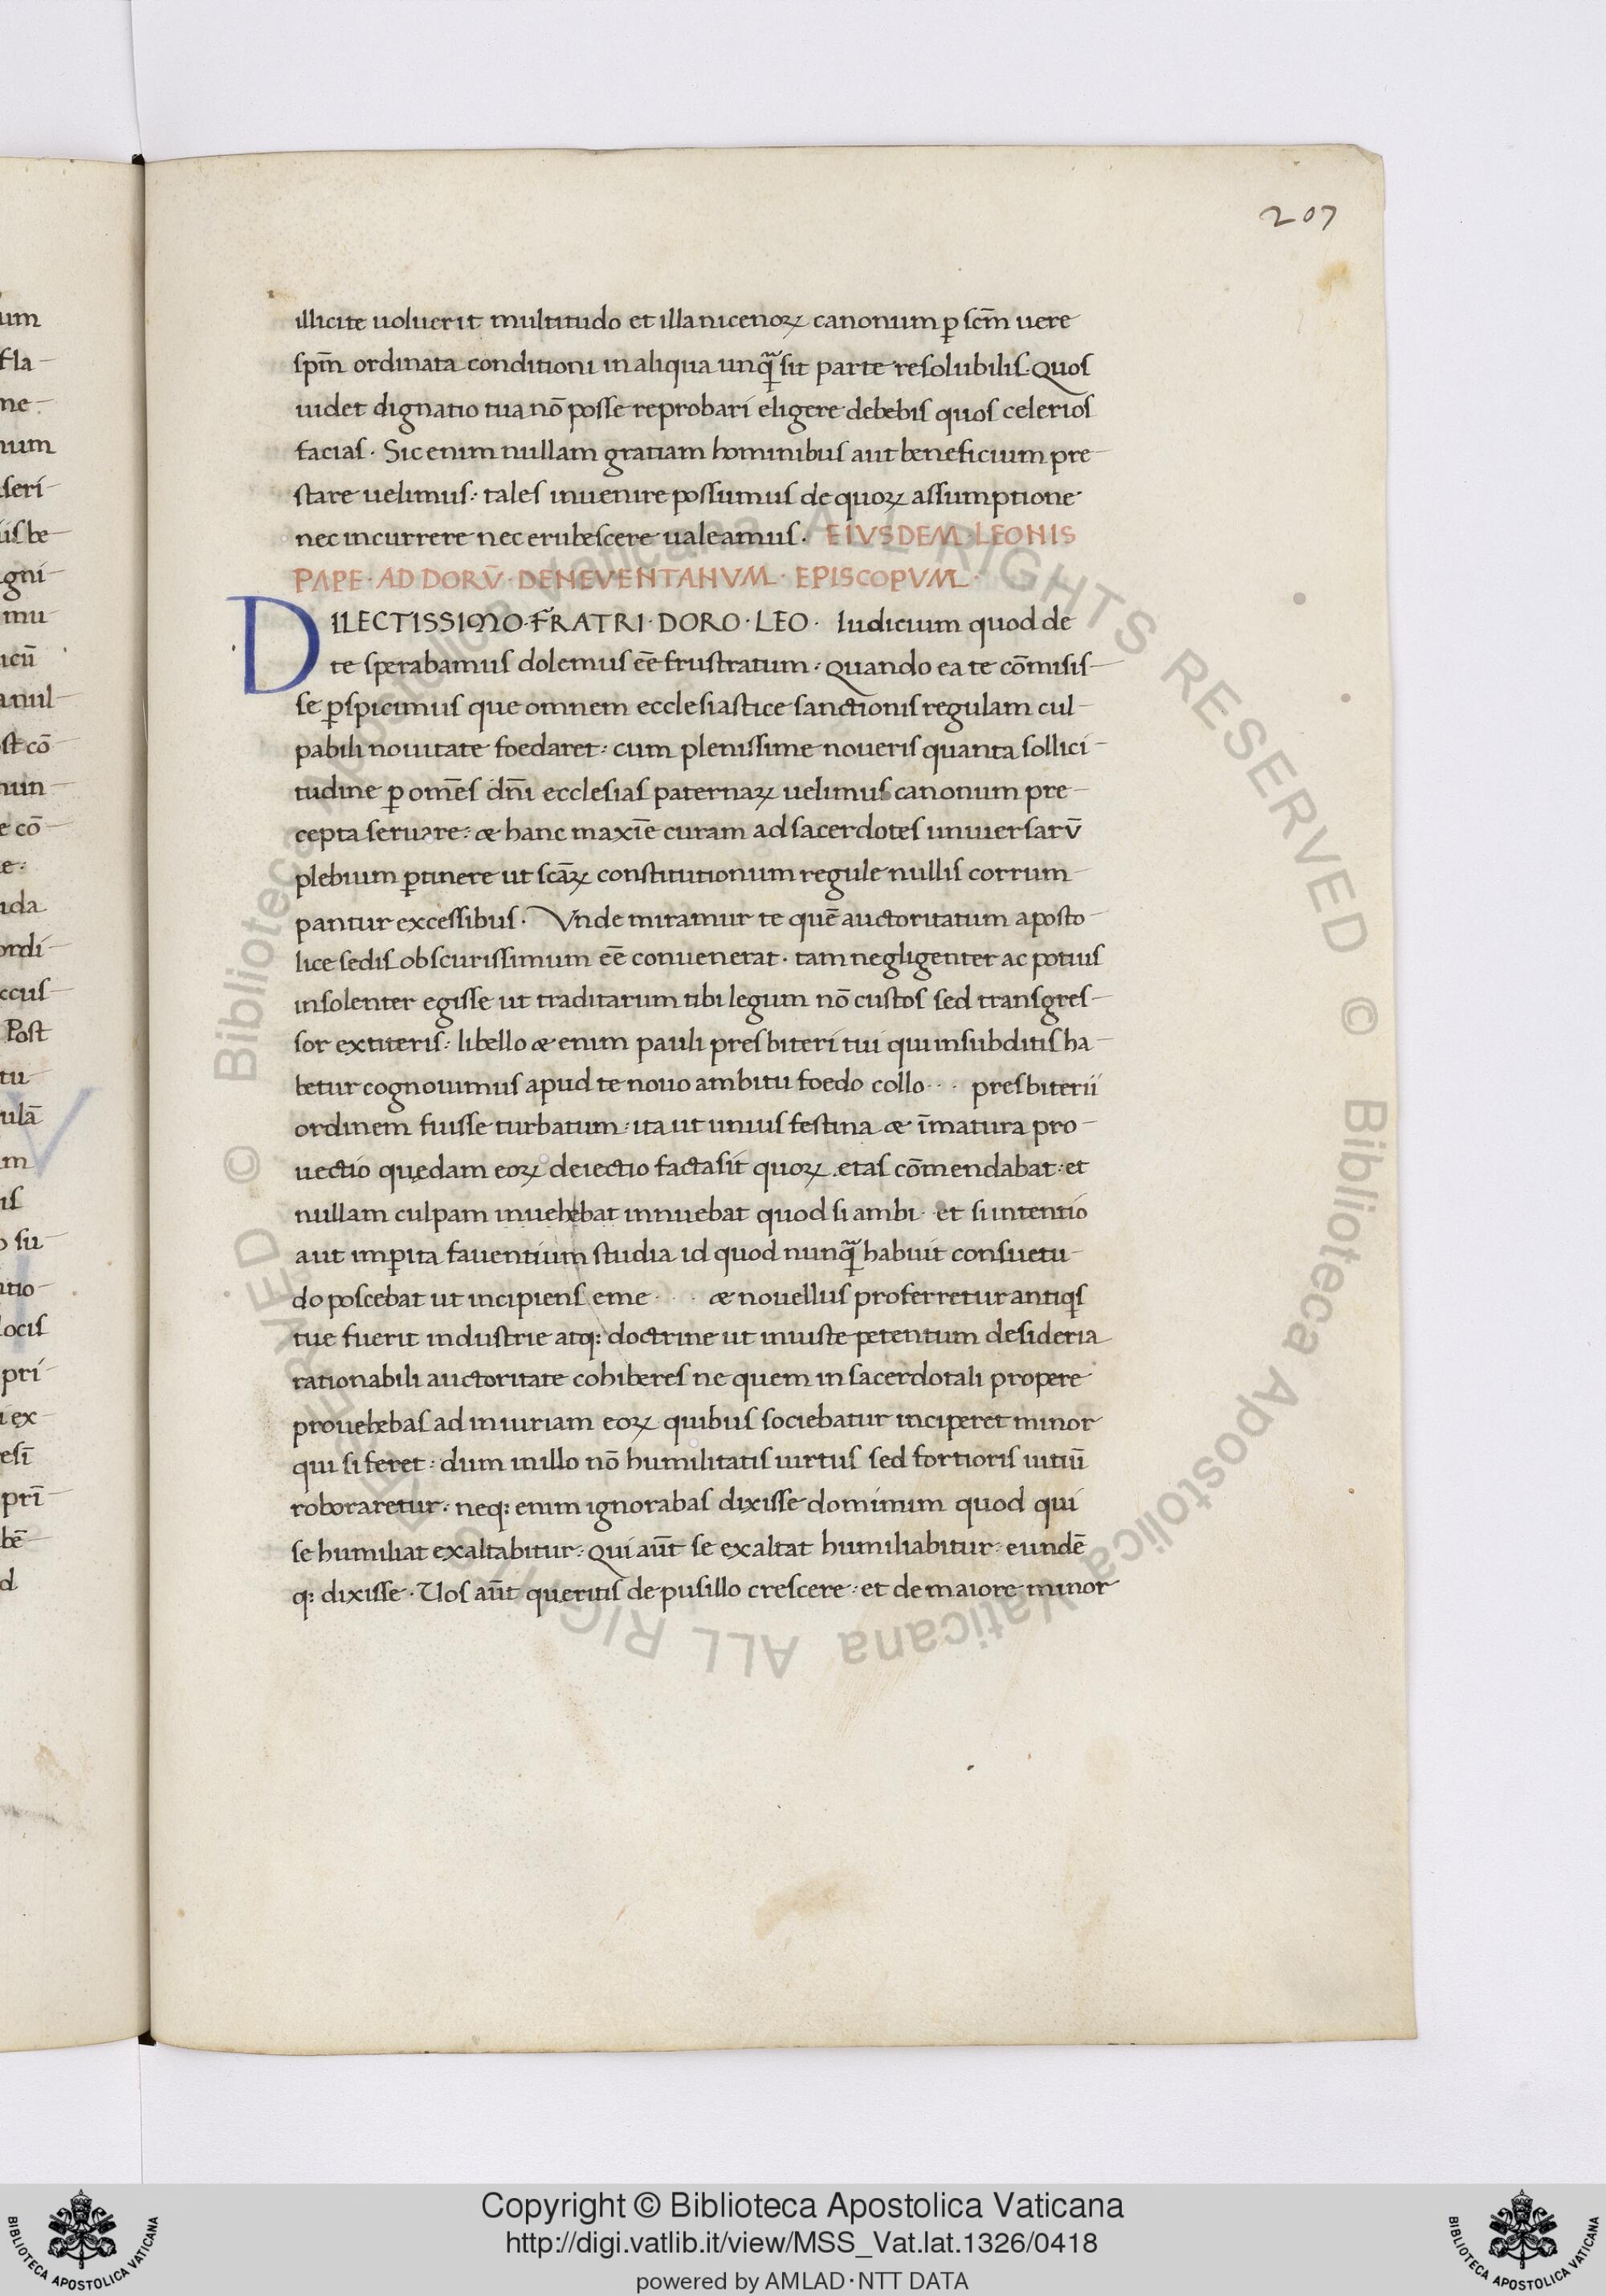 207
illicite uoluerit multitudo et illa nicenoꝝ canonum ꝑ scm̄ uere
spm̄ ordinata conditioni in aliqua unqᷓ sit parte resolubilis. Quos
uidet dignatio tua nō posse reprobari eligere debebis quos celerios
facias. Sic enim nullam gratiam hominibus aut beneficium pre-
stare uelimus: tales inuenire possumus de quoꝝ assumptione
nec incurrere nec erubescere ualeamus. EIVSDEM·LEONIS
PAPE·AD DORV̄·DENEVENTANVM·EPISCOPVM·
DILECTISSIMO·FR̄ATRI·DORO·LEO· Iudicium quod de
te sperabamus dolemus eē frustratum: quando ea te cōmisis-
se ꝑspicimus que omnem ecclesiastice sanctionis regulam cul-
pabili nouitate foedaret: cum plenissime noueris quanta sollici-
tudine ꝑ om̄es dn̄i ecclesias paternaꝝ uelimus canonum pre-
cepta seruare: æ hanc maxīe curam ad sacerdotes uniuersarū
plebium ꝑtinere ut scāꝝ constitutionum regule nullis corrum-
pantur excessibus. Vnde miramur te quē auctoritatum aposto-
lice sedis obscurissimum eē conuenerat. tam negligenter ac potius
insolenter egisse ut traditarum tibi legum nō custos sed transgres-
sor extiteris: libello æ enim pauli presbiteri tui qui in subditis ha-
betur cognouimus apud te nouo ambitu foedo collo··· presbiterii
ordinem fuisse turbatum: ita ut unius festina æ īmatura pro-
uectio quędam eoꝝ deiectio facta sit quoꝝ etas cōmendabat: et
nullam culpam inuehebat innuebat quod si ambi·· et si intentio
aut imꝑita fauentium studia id quod nunqᷓ habuit consuetu-
do poscebat ut incipiens eme ··· æ nouellus proferretur antiqs
tue fuerit industrie atq: doctrine ut iniuste petentum desideria
rationabili auctoritate cohiberes ne quem in sacerdotali propere
prouehebas ad iniuriam eoꝝ quibus sociebatur inciperet minor
qui si feret: dum in illo nō humilitatis uirtus sed fortioris uitiū
roboraretur. neq: enim ignorabas dixisse dominum quod qui
se humiliat exaltabitur: Qui aūt se exaltat humiliabitur: eundē
q: dixisse. Uos aūt queritis de pusillo crescere: et de maiore minor
Copyright © Biblioteca Apostolica Vaticana
http://digi.vatlib.it/view/MSS_Vat.lat.1326/0418
powered by AMLAD·NTT DATA